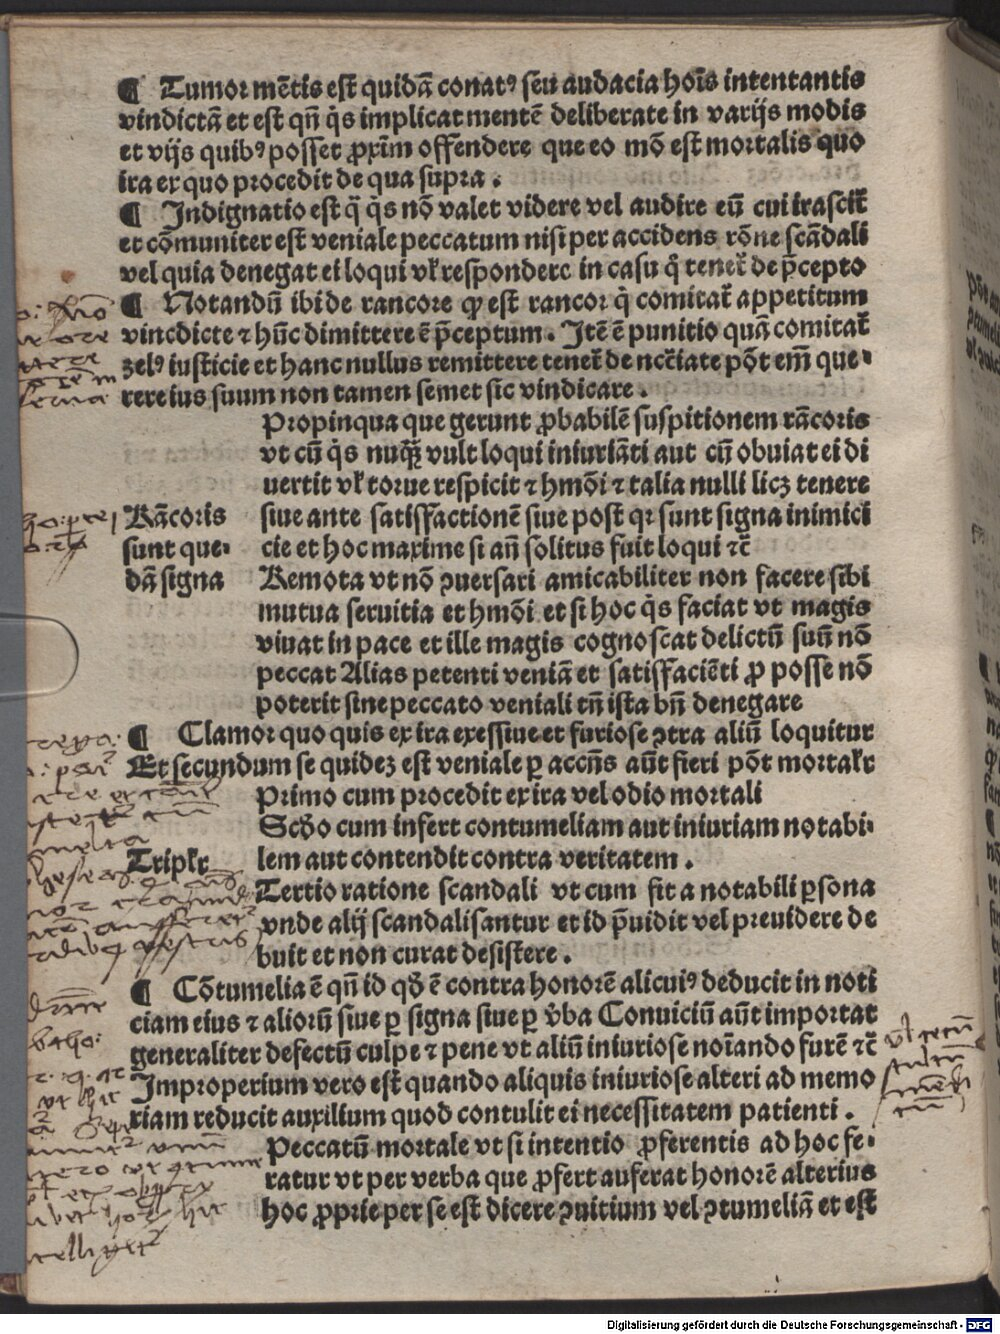 ¶ Tumor mētis est quidā conatꝰ seu audacia hoīs intentantis
vindictā et est qn̄ q̇s implicat mentē deliberate in varijs modis
et vijs quibꝰ posset ꝓxīm offendere que eo mō est mortalis quo
ira ex quo procedit de qua supra .
¶ Indignatio est q̄ q̇s nō valet videre vel audire eū cui irascit̄
et cōmuniter est veniale peccatum nisi per accidens rōne scādali
vel quia denegat ei loqui vƚ respondere in casu q̇ tenet̄ de p̄cepto
¶ Notandū ibi de rancore ꝙ est rancor q̇ comitat̄ appetitum
vincdicte ⁊ hūc dimittere ē p̄ceptum . Itē ē punitio quā comitat̄
zelꝰ iusticie et hanc nullus remittere tenet̄ de nc̄c̄iate pōt em̄ que-
rere ius suum non tamen semet sic vindicare .
Propinqua que gerunt ꝓbabilē suspitionem rācoris
vt cū q̇s nuq̄ꝫ vult loqui iniuriāti aut cū obuiat ei di
uertit vƚ torue respicit ⁊ hmōi ⁊ talia nulli licꝫ tenere
Rācoris siue ante satisfactionē siue post qꝛ sunt signa inimici
sunt que- cie et hoc maxime si an̄ solitus fuit loqui ⁊c̄
dā signa Remota vt nō ꝯuersari amicabiliter non facere sibi
mutua seruitia et hmōi et si hoc q̇s faciat vt magis
viuat in pace et ille magis cognoscat delictū suū nō
peccat Alias petenti veniā et satisfaciēti ꝓ posse nō
poterit sine peccato veniali tn̄ ista bn̄ denegare
¶ Clamor quo quis ex ira exessiue et furiose ꝯtra aliū loquitur
Et secundum se quidez est veniale ꝑ accn̄s aūt fieri pōt mortaƚr
Primo cum procedit ex ira vel odio mortali
Scd̄o cum infert contumeliam aut iniuriam notabi-
Tripƚr lem aut contendit contra veritatem .
Tertio ratione scandali vt cum fit a notabili ꝑsona
vnde alij scandalisantur et id p̄uidit vel preuidere de
buit et non curat desistere .
¶ Cōtumelia ē qn̄ id qd̄ ē contra honorē alicuiꝰ deducit in noti
ciam eius ⁊ aliorū siue ꝑ signa siue ꝑ v̄ba Conuiciū aūt importat
generaliter defectū culpe ⁊ pene vt aliū iniuriose noīando furē ⁊c̄
Improperium vero est quando aliquis iniuriose alteri ad memo
riam reducit auxilium quod contulit ei necessitatem patienti .
Peccatū mortale vt si intentio ꝓferentis ad hoc fe-
ratur vt per verba que ꝓfert auferat honorē alterius
hoc ꝓprie per se est dicere ꝯuitium vel ꝯtumeliā et est
Digitalisierung gefördert durch die Deutsche Forschungsgemeinschaft - DFG